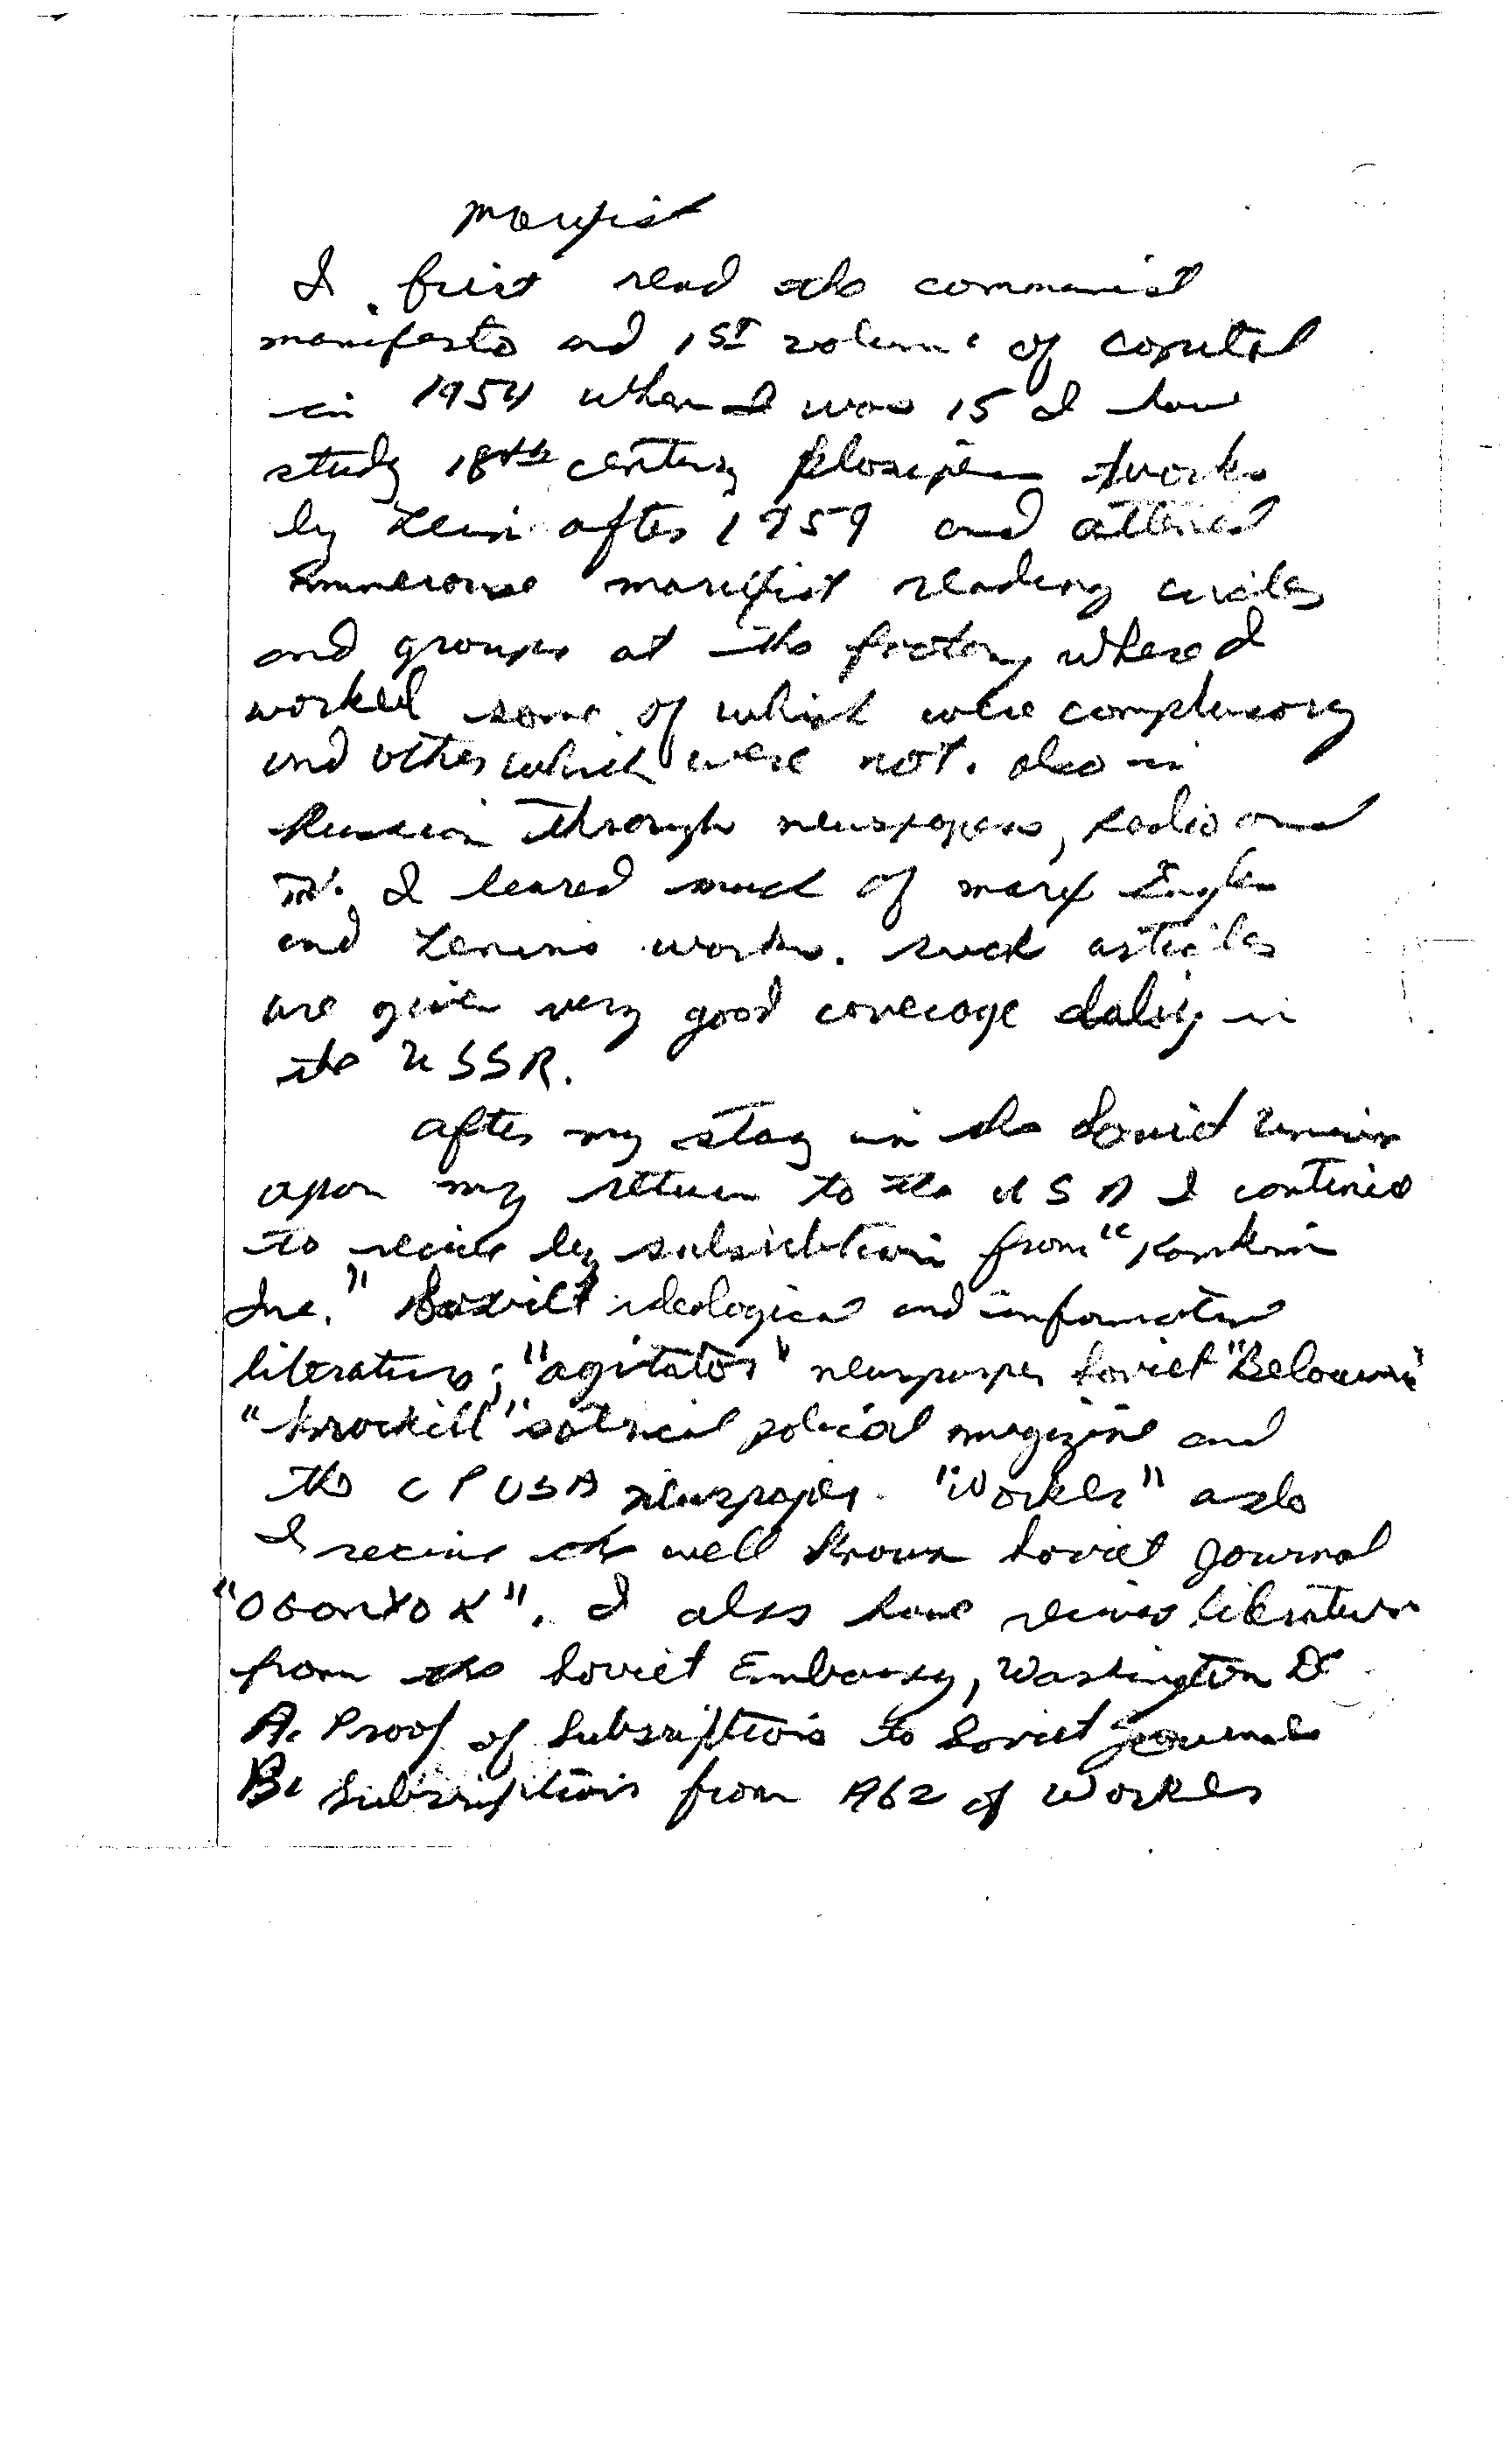 Marxist
I first read the communist
manifesto and 1st volume of capital
in 1954 when I was 15 I have
study 18th century plosipers works
by Lein after 1959 and attened
numerouse marxist reading circles
and groups at the factory where I
worked some of which were complusory
and other which were not. also in
Russia through newspapers, radio and
T.V. I leared much of marx Engles
and Lenins works. such articles
are given very good coverage daliy in
the USSR.
after my stay in the Soviet Union
upon my return to the USA I continied
to recive by subsicbtion from "Kamkin
Inc." Soviet ideological and informative
literature; "agitator" newspaper Soviet "Belourussia"
"krockill" satrical polical magizine and
the CPUSA newspaper. "Worker" aslo
I recive the well known Soviet journal
"OGONYOK". I also have recived literature
from the Soviet Embassy, Washington DC
A. Proof of Subsriptions to Soviet journals
B. Subsriptions from 1962 of Worker